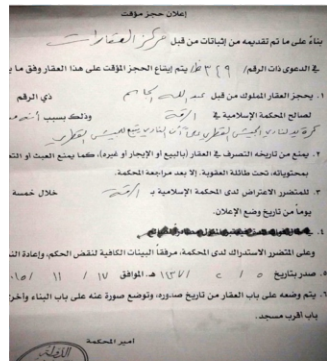 إعلان حجز مؤقت
بناءً على ما تم تقديمه من إثباتات من قبل مركز العقارات
في الدعوى ذات الرقم / ٣٢٩ / يتم إيقاع الحجز المؤقت على هذا العقار وفق ما
١. يحجز العقار المملوك من قبل عبد الله الجاسم ذي الرقم
لصالح المحكمة الإسلامية في الرقة وذلك بسبب
٢. يمنع من تاريخه التصرف في العقار (بالبيع أو الإيجار أو غيره)، كما يمنع العبث أو
بمحتوياته، تحت طائلة العقوبة، إلا بعد مراجعة المحكمة.
٣. للمتضرر الاعتراض لدى المحكمة الإسلامية بـ الرقة خلال خمسة
يوماً من تاريخ وضع الإعلان.
٤.
وعلى المتضرر الاستدراك لدى المحكمة، مرفقاً البينات الكافية لنقض الحكم، وإعادة
٥. صدر بتاريخ ٥ / ٢ / ١٤٣٧ هـ الموافق ١٧ / ١١ /
٦. يتم وضعه على باب العقار من تاريخ صدوره، وتوضع صورة عنه على باب البناء
باب أقرب مسجد.
أمير المحكمة